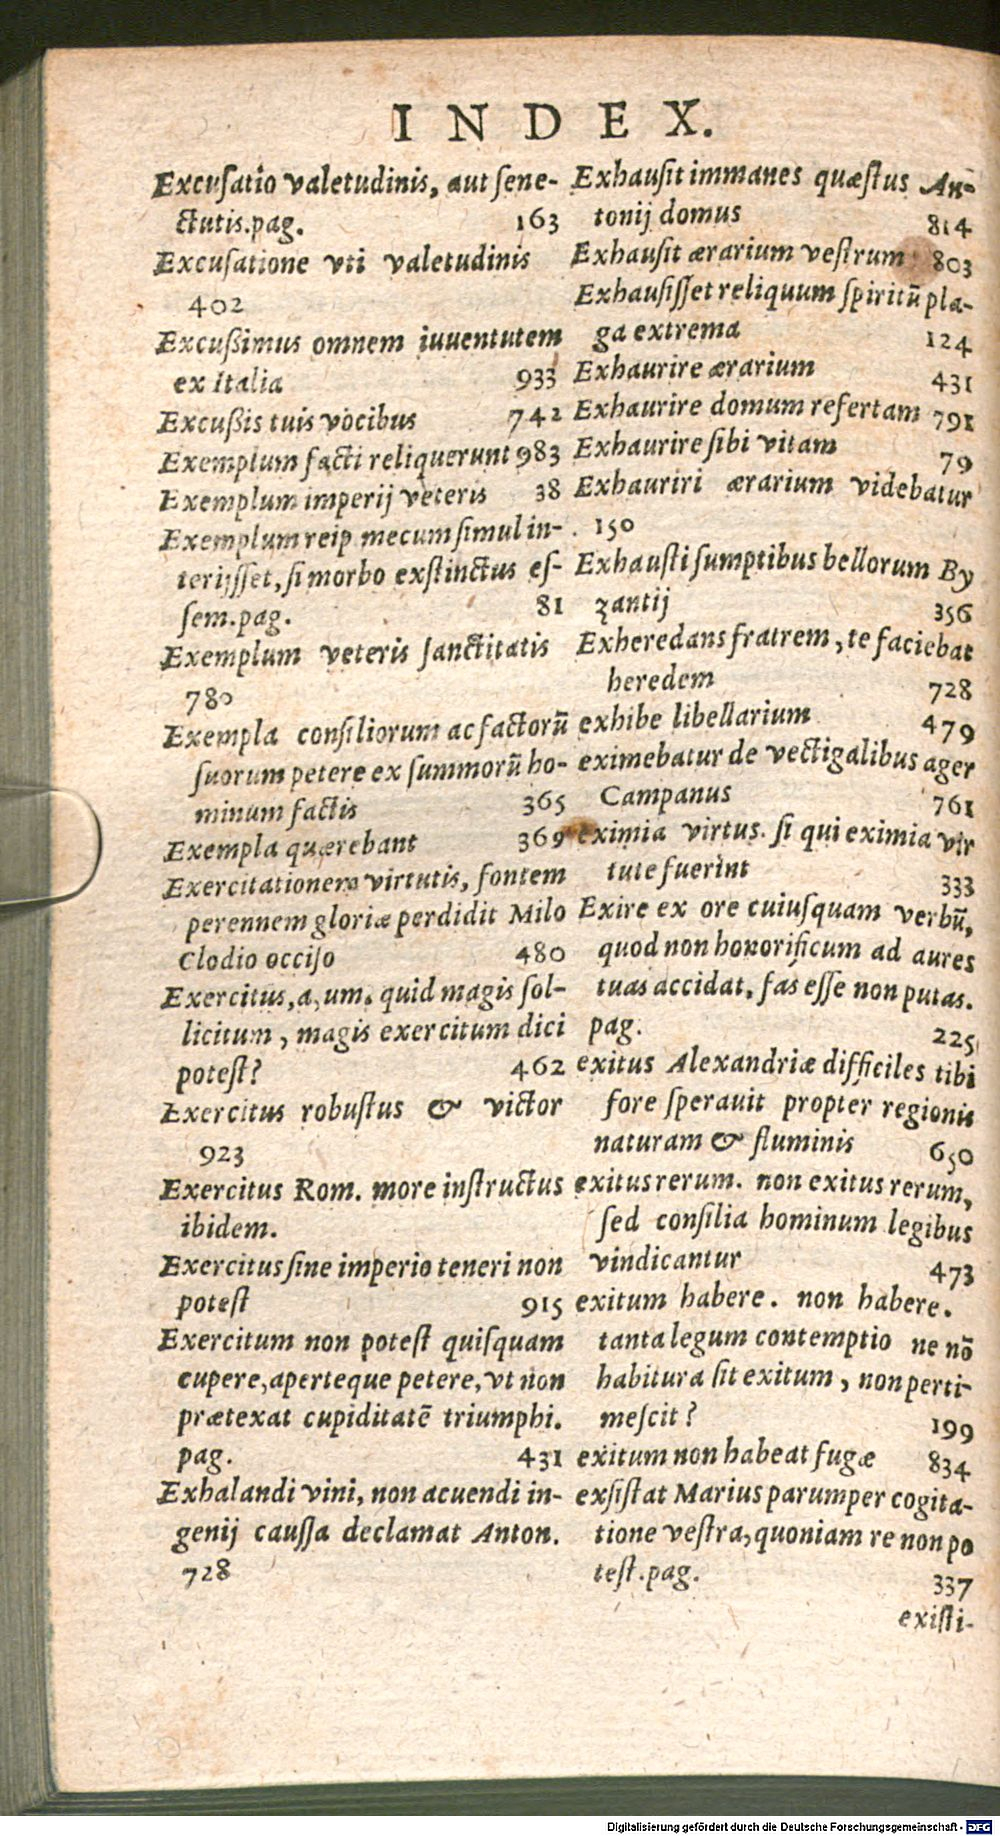 INDEX.
Excusatio valetudinis, aut sene-
ctutis.pag. 163
Excusatione vti valetudinis
402
Excußimus omnem iuuentutem
ex Italia 933
Excußis tuis vocibus 742
Exemplum facti reliquerunt 983
Exemplum imperij veteris 38
Exemplum reip mecum simul in-
terijsset, si morbo exstinctus es-
sem.pag. 81
Exemplum veteris sanctitatis
780
Exempla consiliorum ac factorū
suorum petere ex summorū ho-
minum factis 365
Exempla quærebant 369
Exercitationem virtutis, fontem
perennem gloriæ perdidit Milo
Clodio occiso 480
Exercitus,a,um. quid magis sol-
licitum, magis exercitum dici
potest? 462
Exercitus robustus & victor
923
Exercitus Rom. more instructus
ibidem.
Exercitus sine imperio teneri non
potest 915
Exercitum non potest quisquam
cupere,aperteque petere,vt non
prætexat cupiditatē triumphi.
pag. 431
Exhalandi vini, non acuendi in-
genij caussa declamat Anton.
728
Exhausit immanes quæstus An-
tonij domus 814
Exhausit ærarium vestrum 803
Exhausisset reliquum spiritū pla-
ga extrema 124
Exhaurire ærarium 431
Exhaurire domum refertam 791
Exhaurire sibi vitam 79
Exhauriri ærarium videbatur
150
Exhausti sumptibus bellorum By
zantij 356
Exheredans fratrem, te faciebat
heredem 728
exhibe libellarium 479
eximebatur de vectigalibus ager
Campanus 761
eximia virtus. si qui eximia vir
tute fuerint 333
Exire ex ore cuiusquam verbū,
quod non honorificum ad aures
tuas accidat, fas esse non putas.
pag. 225
exitus Alexandriæ difficiles tibi
fore sperauit propter regionis
naturam & fluminis 650
exitus rerum. non exitus rerum,
sed consilia hominum legibus
vindicantur 473
exitum habere. non habere.
tanta legum contemptio ne nō
habitura sit exitum, non perti-
mescit? 199
exitum non habeat fugæ 834
exsistat Marius parumper cogita-
tione vestra,quoniam re non po
test.pag. 337
existi-
Digitalisierung gefördert durch die Deutsche Forschungsgemeinschaft - DFG